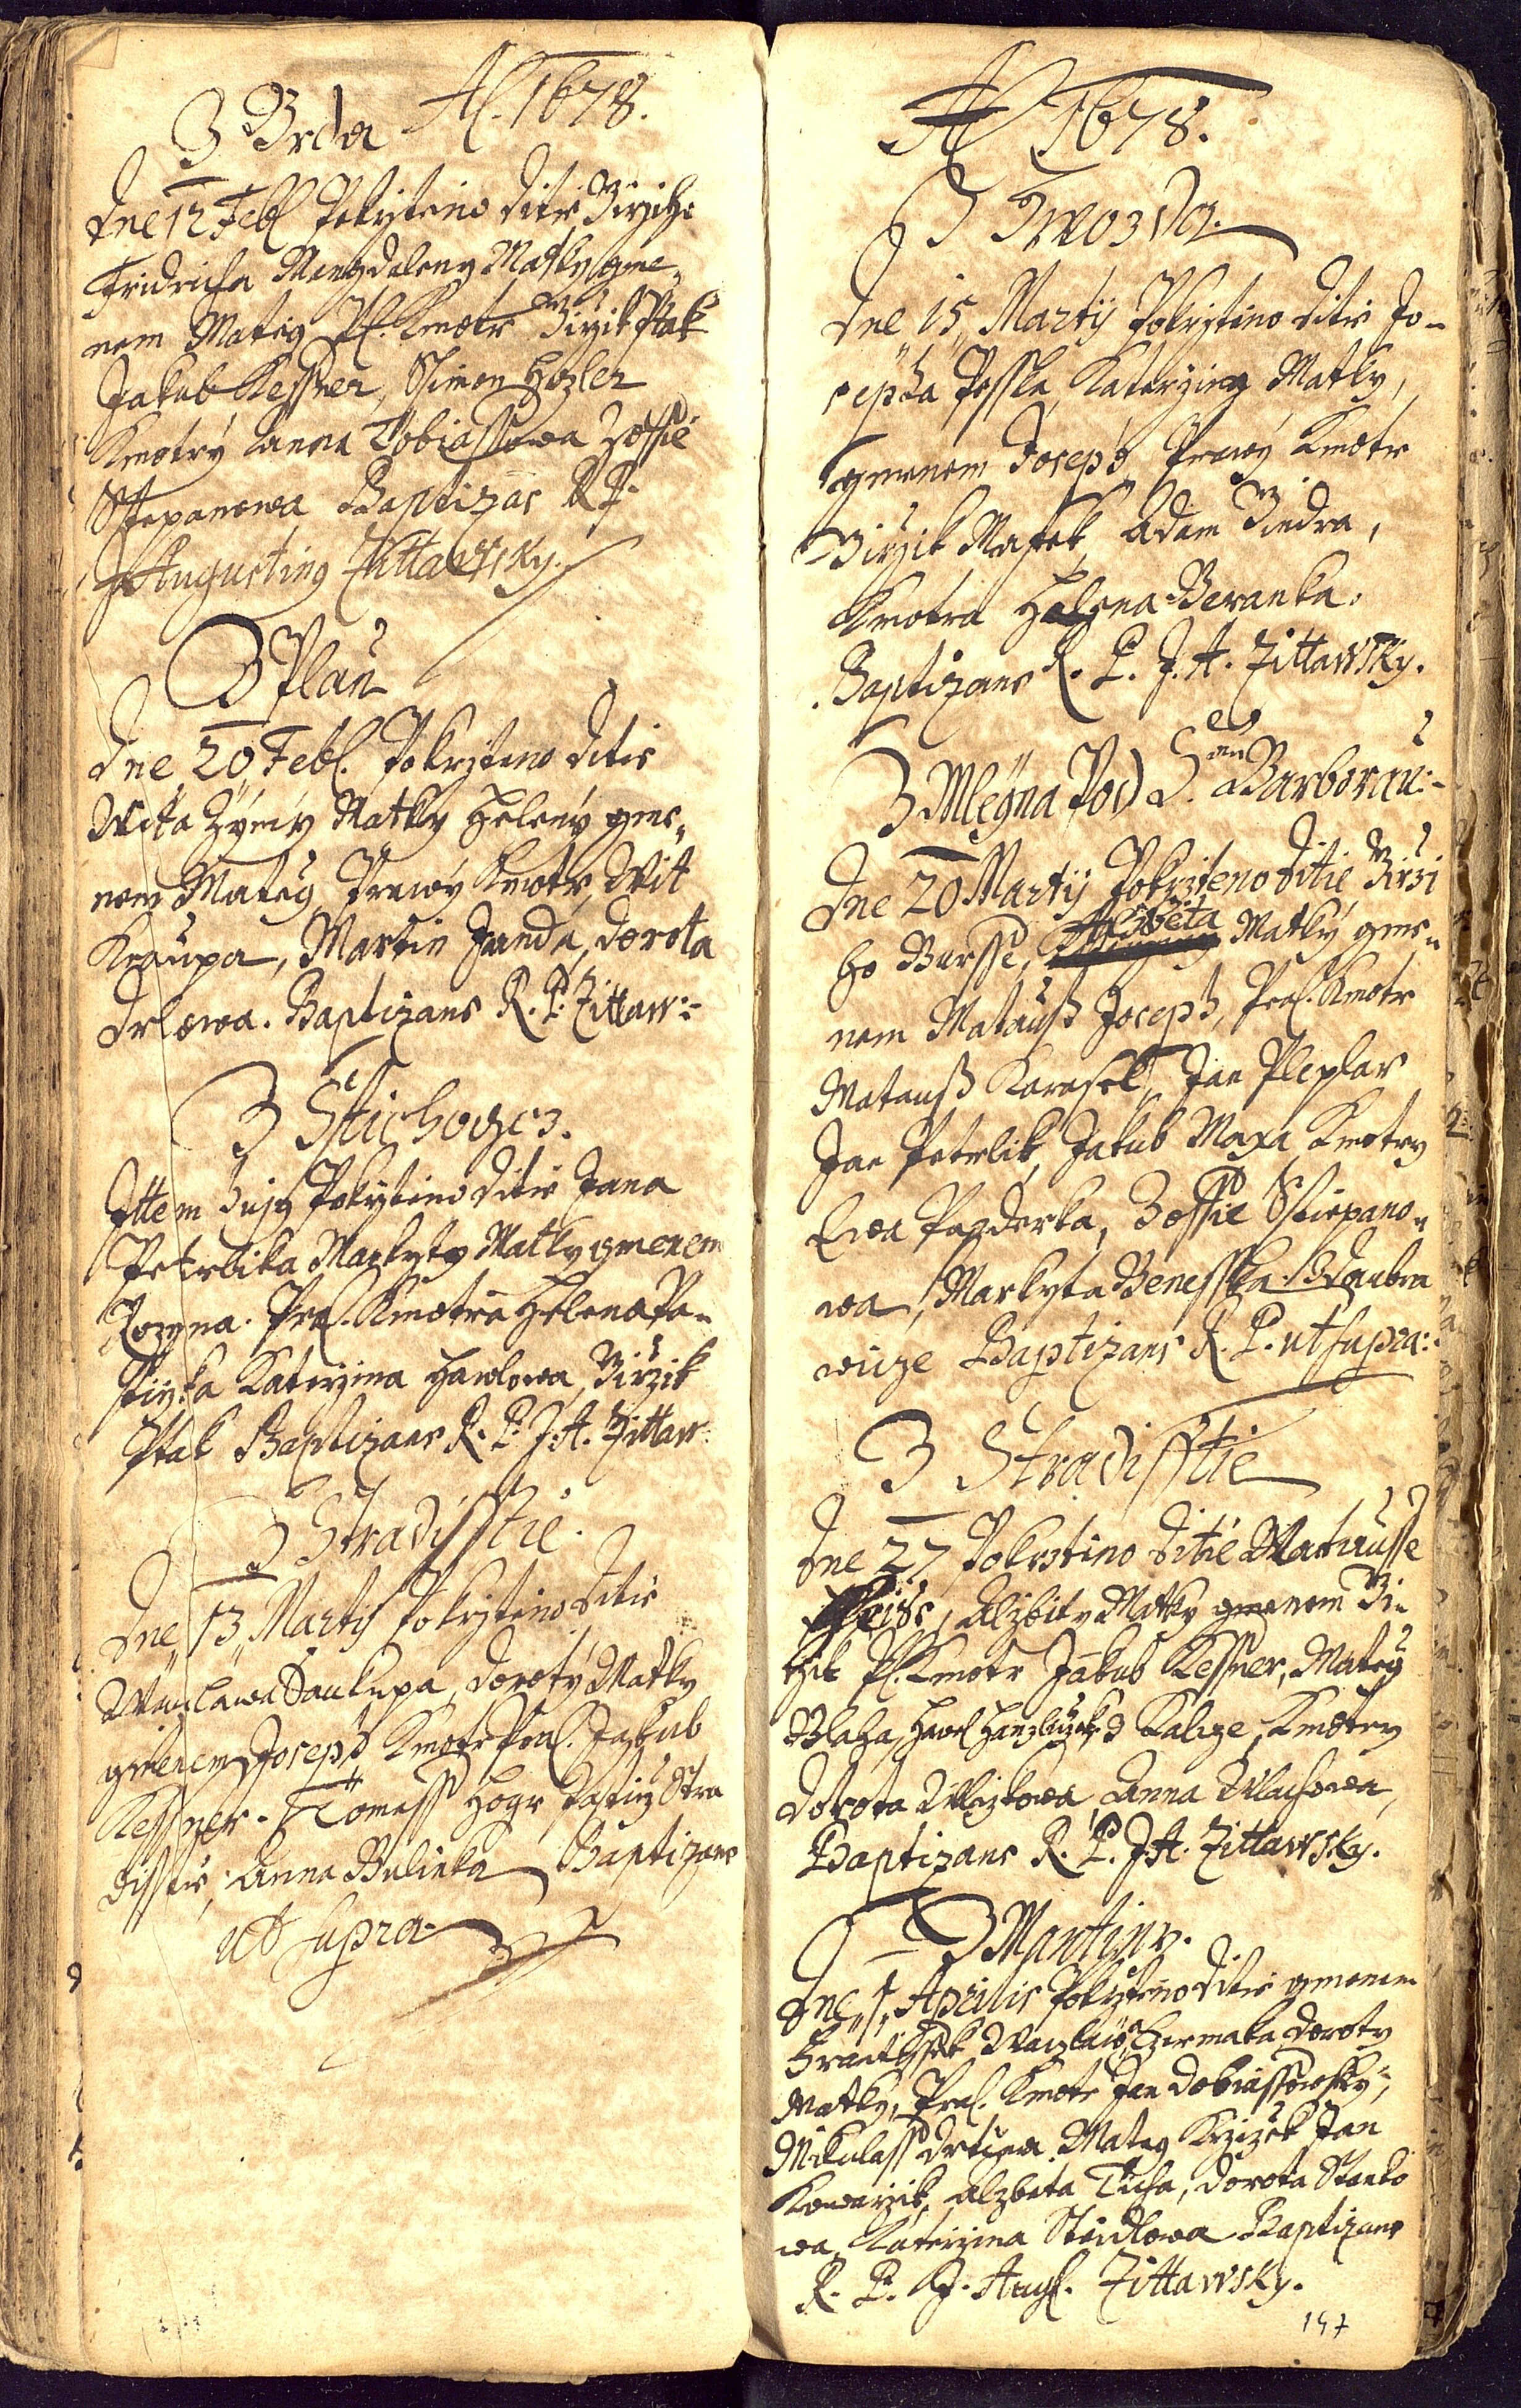 A. 1678.
Z Brda
Dne 12 Feb. Pokrzteno ditie Birzicho
Fridricha Mangdaleny Matky gme„
nem Mateg P. Kmotr Jirzik Ptak
Jakub Kessner, Simon Hozler
Kmotry Anna Tobiassowa Zoffie
Stepanowa Baptizās R P.
J Augusting Zittawsky.
Z Plan
Dne 20 Feb. Pokrzteno ditie
Wita Zymy Matky Heleny gme„
nem Mateg Prawy Kmotr, Wit
Kraupa, Martin Janda, Dorota
Drlowa. Baptizans R. P. Zittaw:-
Z Stichowze.
Ittem Pokrzteno ditie Jana
Petrlika Markyty Matky gmenem
Rozyna. Pra. Kmotra Helena Pa-
Katerzina Hawlowa, Jirzik
Ptak Baptizans R. P. J. A. Zittaw.
Z Stradisstie.
Dne 13 Martij Pokrzteno ditie
Waczlawa Saukupa, Doroty Matky
gmenem Joseph Kmotr Pra. Jakub
Kessner. Tomass Hogr Stra
disstie, Anna Bulinka Baptizans
ut supra
A 1678.
Z Gwozda.
Dne 15 Martij Pokrzteno ditie Jo-
sepha Pessla, Katerziny Matky,
gmenem Joseph Prawy Kmotr
Jirzik Massek, Adam Jindra,
Kmotra Helena Beranka.
Baptizans R. P. J. A. Zittawsky.
Z Mlegna Pod S. Barborau:-
Dne 20 Martij Pokrzteno ditie Jirzi
ho Bursse, Alzbeta Matky gme„
nem Matauss Joseph, Pra. Kmotr
Matauss Karasek, Jan Pleplar
Jan Petrlik, Jakub Maxa Kmotry
Ewa Pazderka, Zoffie Sstiepano„
wa, Markyta Benesska Z Daubra
wicze Baptizans R. P. ut supra:
Z Stradisstie
Dne 27 Pokrztino ditie Matausse
Alzbity Matky gmenem Ji-
rzik P. Kmotr Jakub Kessner, Mateg
Blaha, Hawel Hanzliczek Z Kalize, Kmotry
Dorota Anna Wlachowa,
Baptizans R. P. J. A. Zittawsky.
Z Martinu.
Dne 1, Aprilis Pokrzteno ditie gmenem
Frantissek Waczlawa Czermaka Doroty
Matky, Pra. Kmotr Jan Dobrassowsky,
Mikulass Drtina Mateg Krzizek Jan
Kowarzik, Alzbeta Ticha, Dorota Stanko
wa, Katerzina Steidlowa Baptizans
R. P. J. Aug. Zittawsky.
147